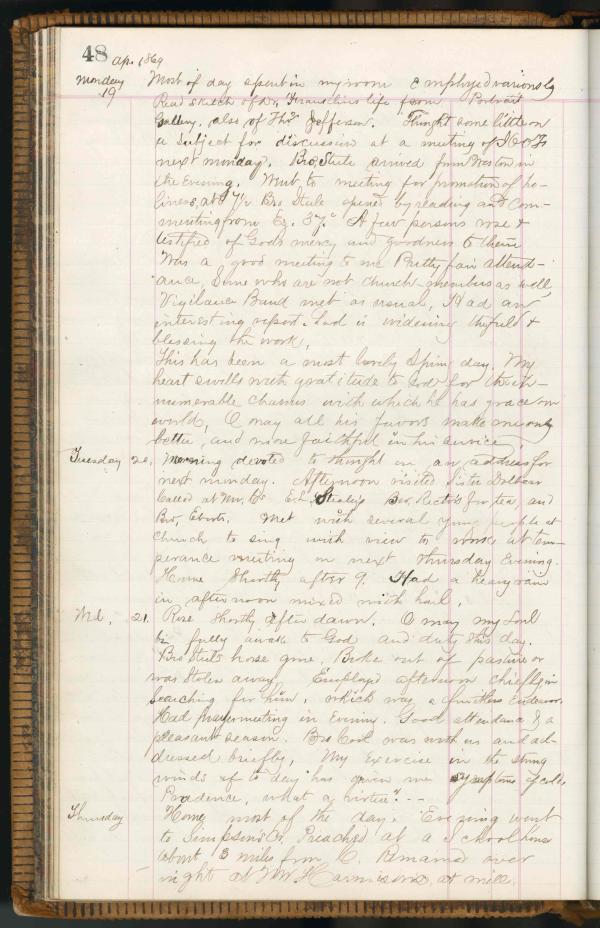 48 Ap. 1869
Monday Most of day spent in my room employed variously
19 Read sketch of Dr. Franklin's life from Portrait
Gallery, also of Thos Jefferson. Thought some little on
a subject for discussion at a meeting of I.O.
next monday. Bro. Steele arrived from Weston in
the Evening. Went to meeting for promotion of ho-
liness, at 7½ Bro Steele opened by reading and com-
menting from Ez. 37. A few persons rose &
testified of Gods mercy and goodness to them
Was a good meeting to me Pretty fair attend-
ance, Some who are not church members as well,
Vigilance Band met as usual, Had an
interesting report. God is widening the field &
blessing the work,
This has been a most lovely Spring day. My
heart swells with gratitude to God for the in-
numerable charms with which he has grace our
world, O may all his favors make me only
better, and more faithful in his service
Tuesday 20, Morning devoted to thought on an address for
next monday. Afternoon visited Sister
Called at Mr. Bro, Rectors for tea, and
Bro, Eberts. Met with several young people at
church to sing with view to work at tem-
perance meeting on next Thursday Evening.
Home Shortly after 9. Had a heavy rain
in afternoon mixed with hail,
Wed, 21. Rose shortly after dawn. O may my Soul
be fully awake to God and duty this day.
Bro Steels horse gone, Broke out of pasture or
was stolen away. Employed afternoon chiefly in
searching for him, which was a fruitless Endeavor.
Had prayermeeting in Evening. Good attendance & a
pleasant season. Bro was with us and ad-
dressed briefly, My Exercise in the strong
winds of to day has given me symptoms of cold.
Prudence, what a virtue! - -
Thursday Home most of the day. Evening went
to Simpson's Preached at a school house
about 3 miles from Remained over
night at Mr Harrison's, at mill.